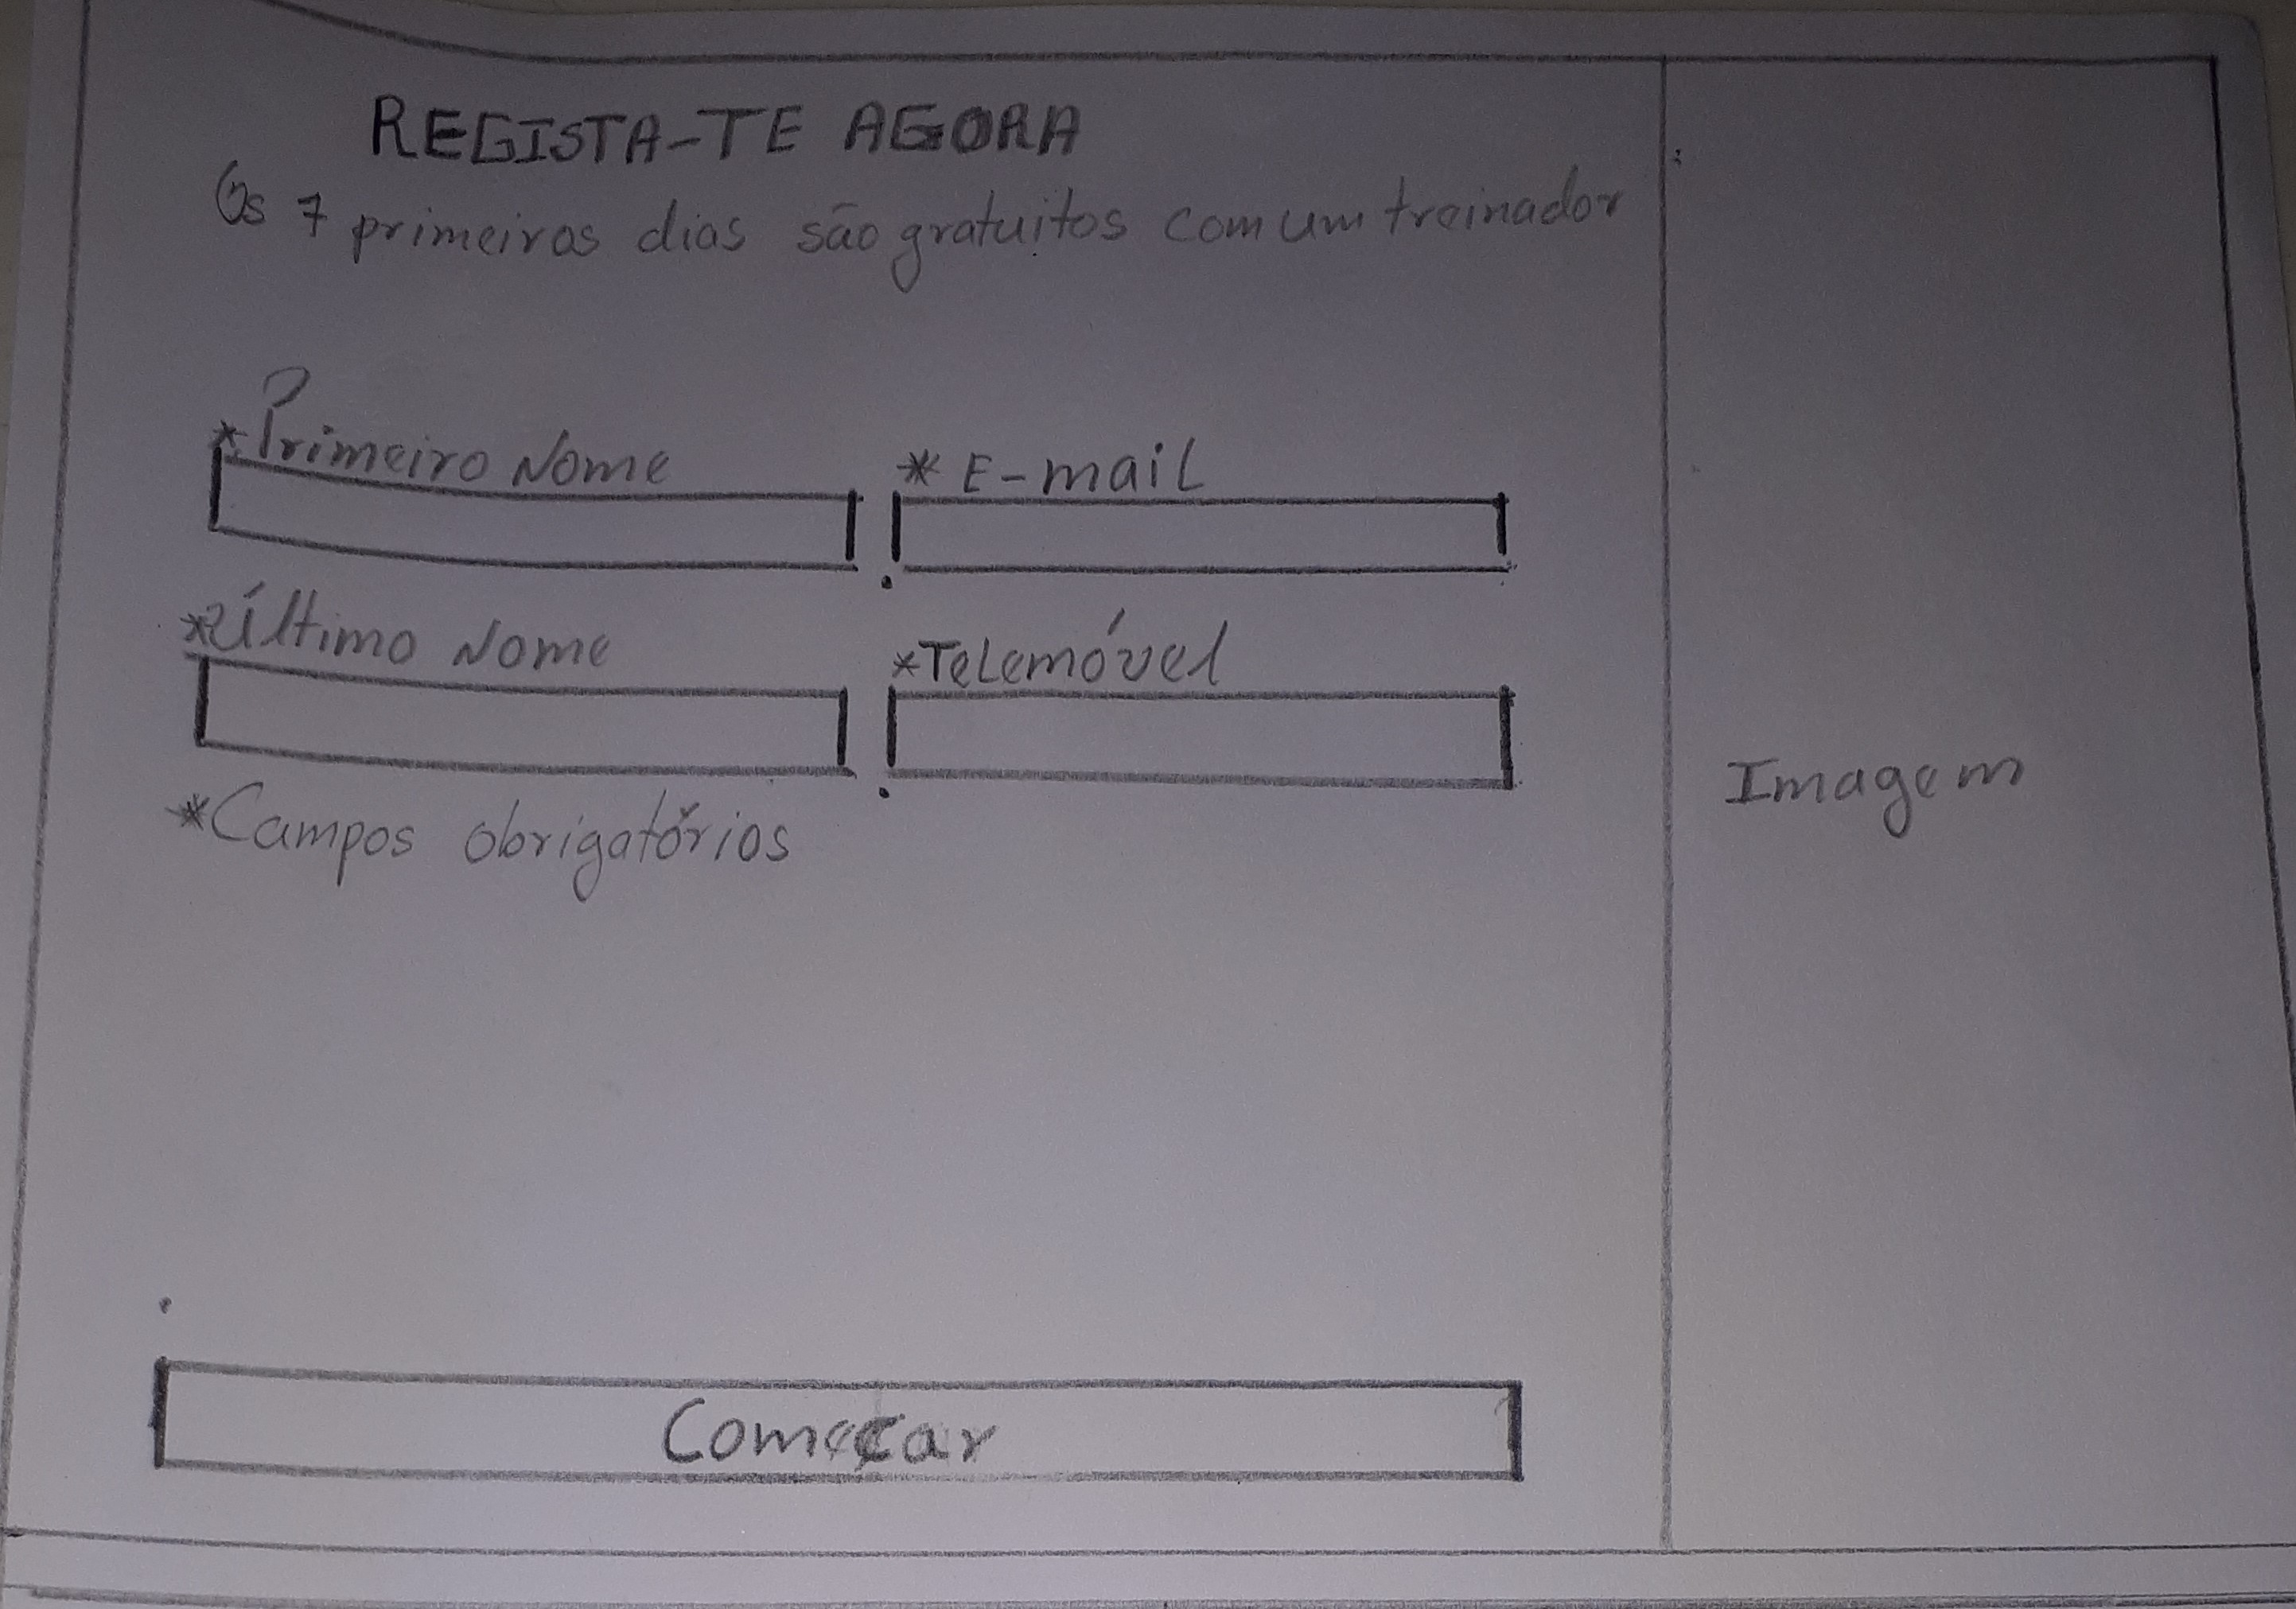 REGISTA-TE AGORA
Os 7 primeiros dias são gratuitos com um treinador
*Primeiro Nome
* E-mail
*Último Nome
*Telemóvel
*Campos obrigatórios
Imagem
Começar